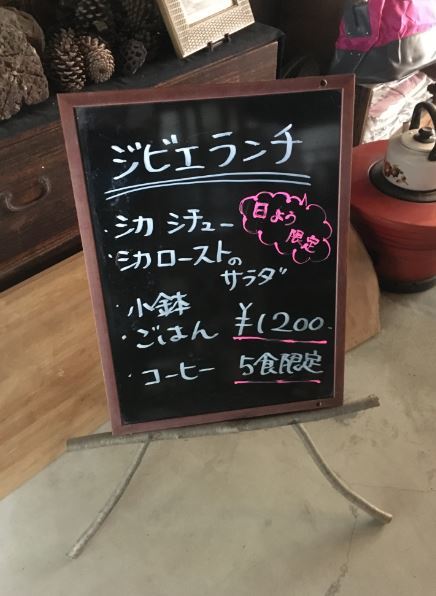 ジビエランチ
日よう
限定
・シカ シチュー
・シカローストの
サラダ
・小鉢
・ごはん ¥1200-
・コーヒー 5食限定